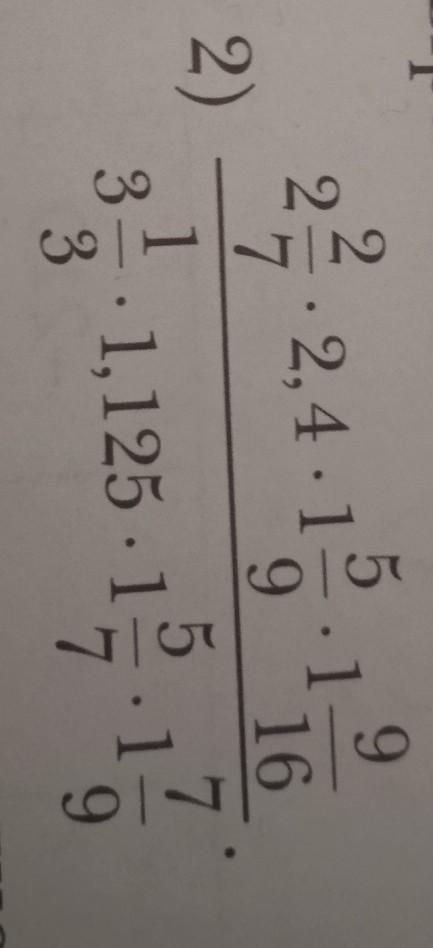 2) (2 2/7 · 2,4 · 1 5/9 · 1 9/16) / (3 1/3 · 1,125 · 1 5/7 · 1 7/9).